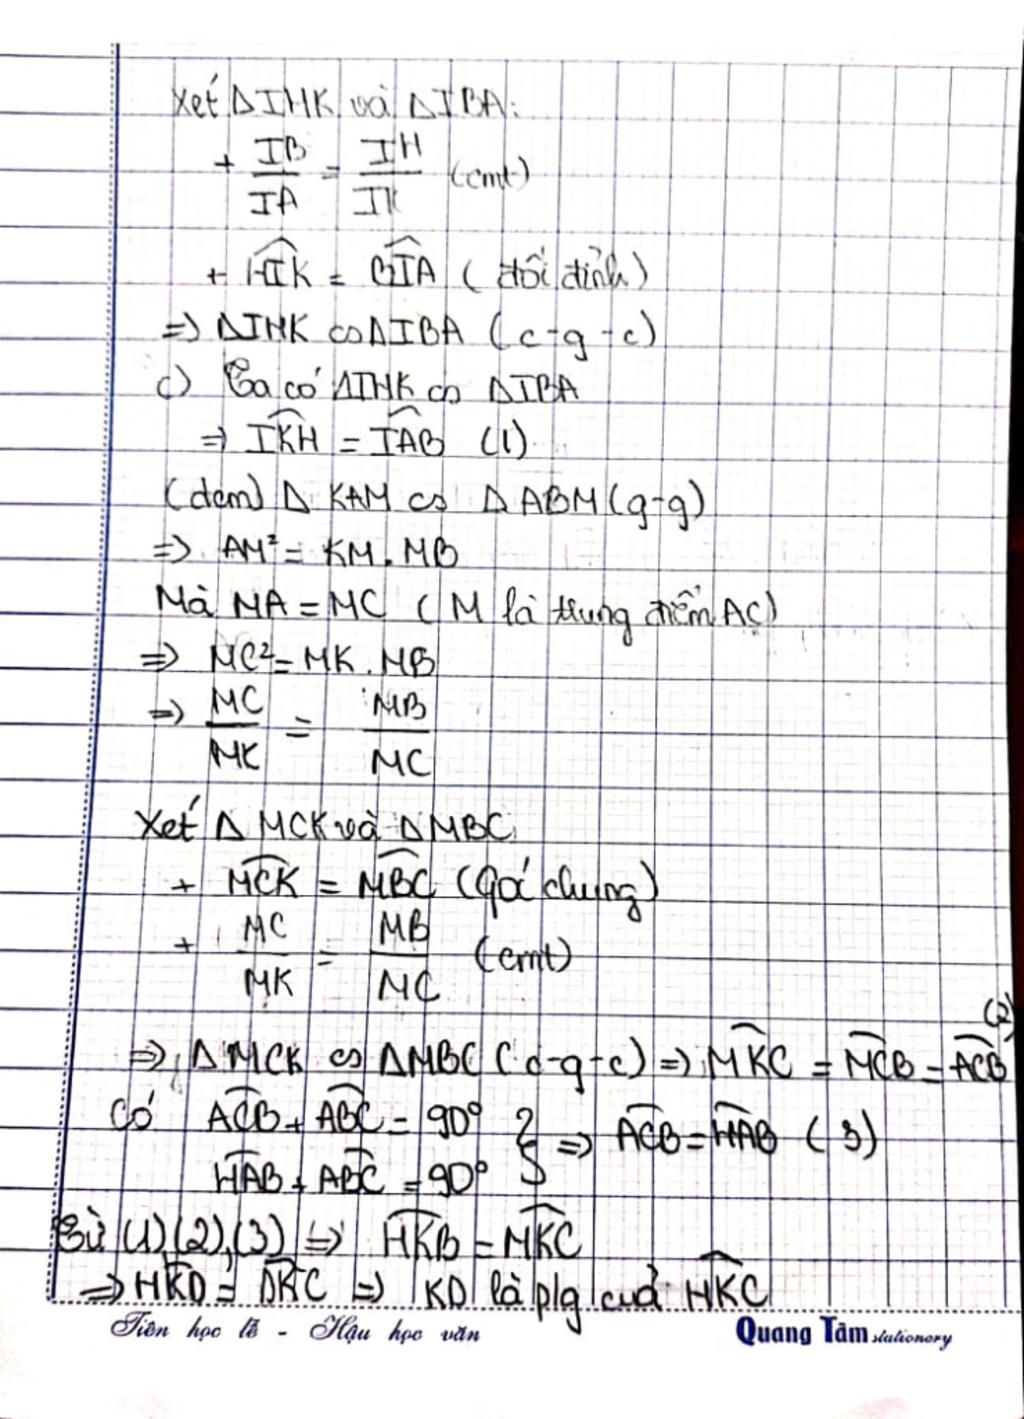 Xét ΔIHK và ΔIBA:
+ IB/IA = IH/IK (cmt)
+ HIK = BIA (đối đỉnh)
=> ΔIHK ∽ ΔIBA (c-g-c)
c) Ta có ΔIHK ∽ ΔIBA
=> IKH = IAB (1)
(dcm) Δ KAM ∽ Δ ABM (g-g)
=> AM² = KM . MB
Mà MA = MC (M là trung điểm AC)
=> MC² = MK . MB
=> MC/MK = MB/MC
Xét Δ MCK và Δ MBC
+ MCK = MBC (Góc chung)
+ MC/MK = MB/MC (cmt)
=> Δ MCK ∽ ΔMBC (c-g-c) => MKC = MCB = ACB (2)
Có ACB + ABC = 90°
HAB + ABC = 90° } => ACB = HAB (3)
Từ (1),(2),(3) => HKB = MKC
=> HKD = DKC => KD là p/g của HKC
Tiên học lễ - Hậu học văn
Quang Tâm stationery